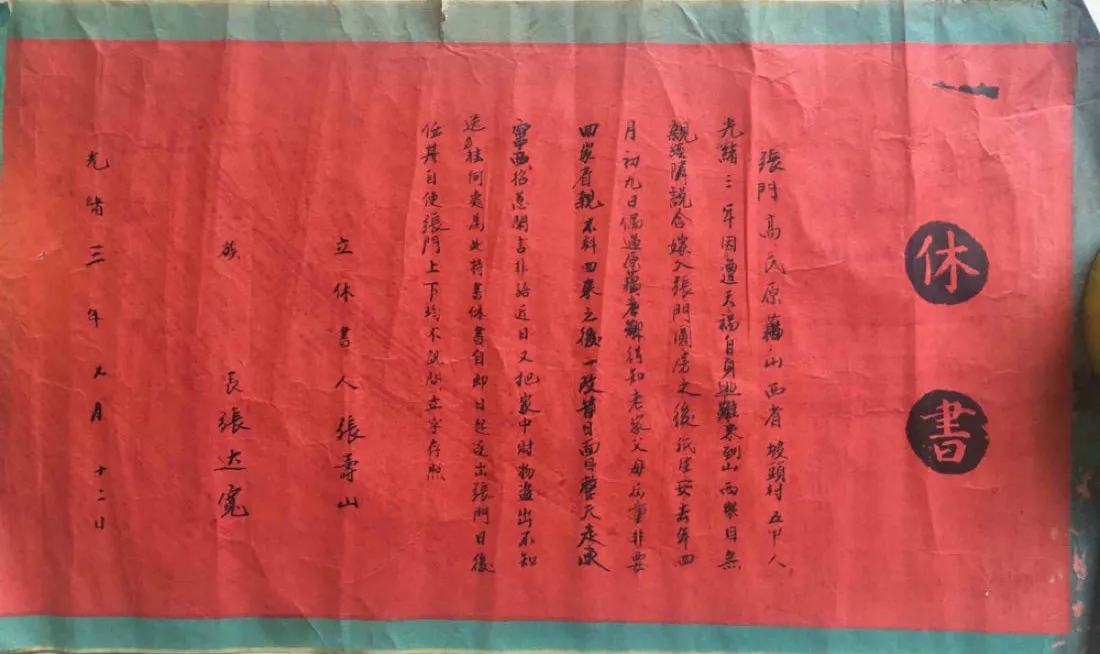 一 休書
張門高氏原藉山西省坡頭村五甲人
光緒三年因遭天禍自身逃難來到山西舉目無
親經隣説合嫁入張門圓房之後抵生一女去年四
月初九日偶遇原藉老鄉得知老家父母病重非要
回家省親不料回來之後一改昔日面目整天走東
串西招惹閑言非始近日又把家中財物盗出不知
送往何處為此特書休書自即日起逐出張門日後
任其自便張門上下均不過問立字存照
立休書人張壽山
族長張达寬
光緒三年九月十二日